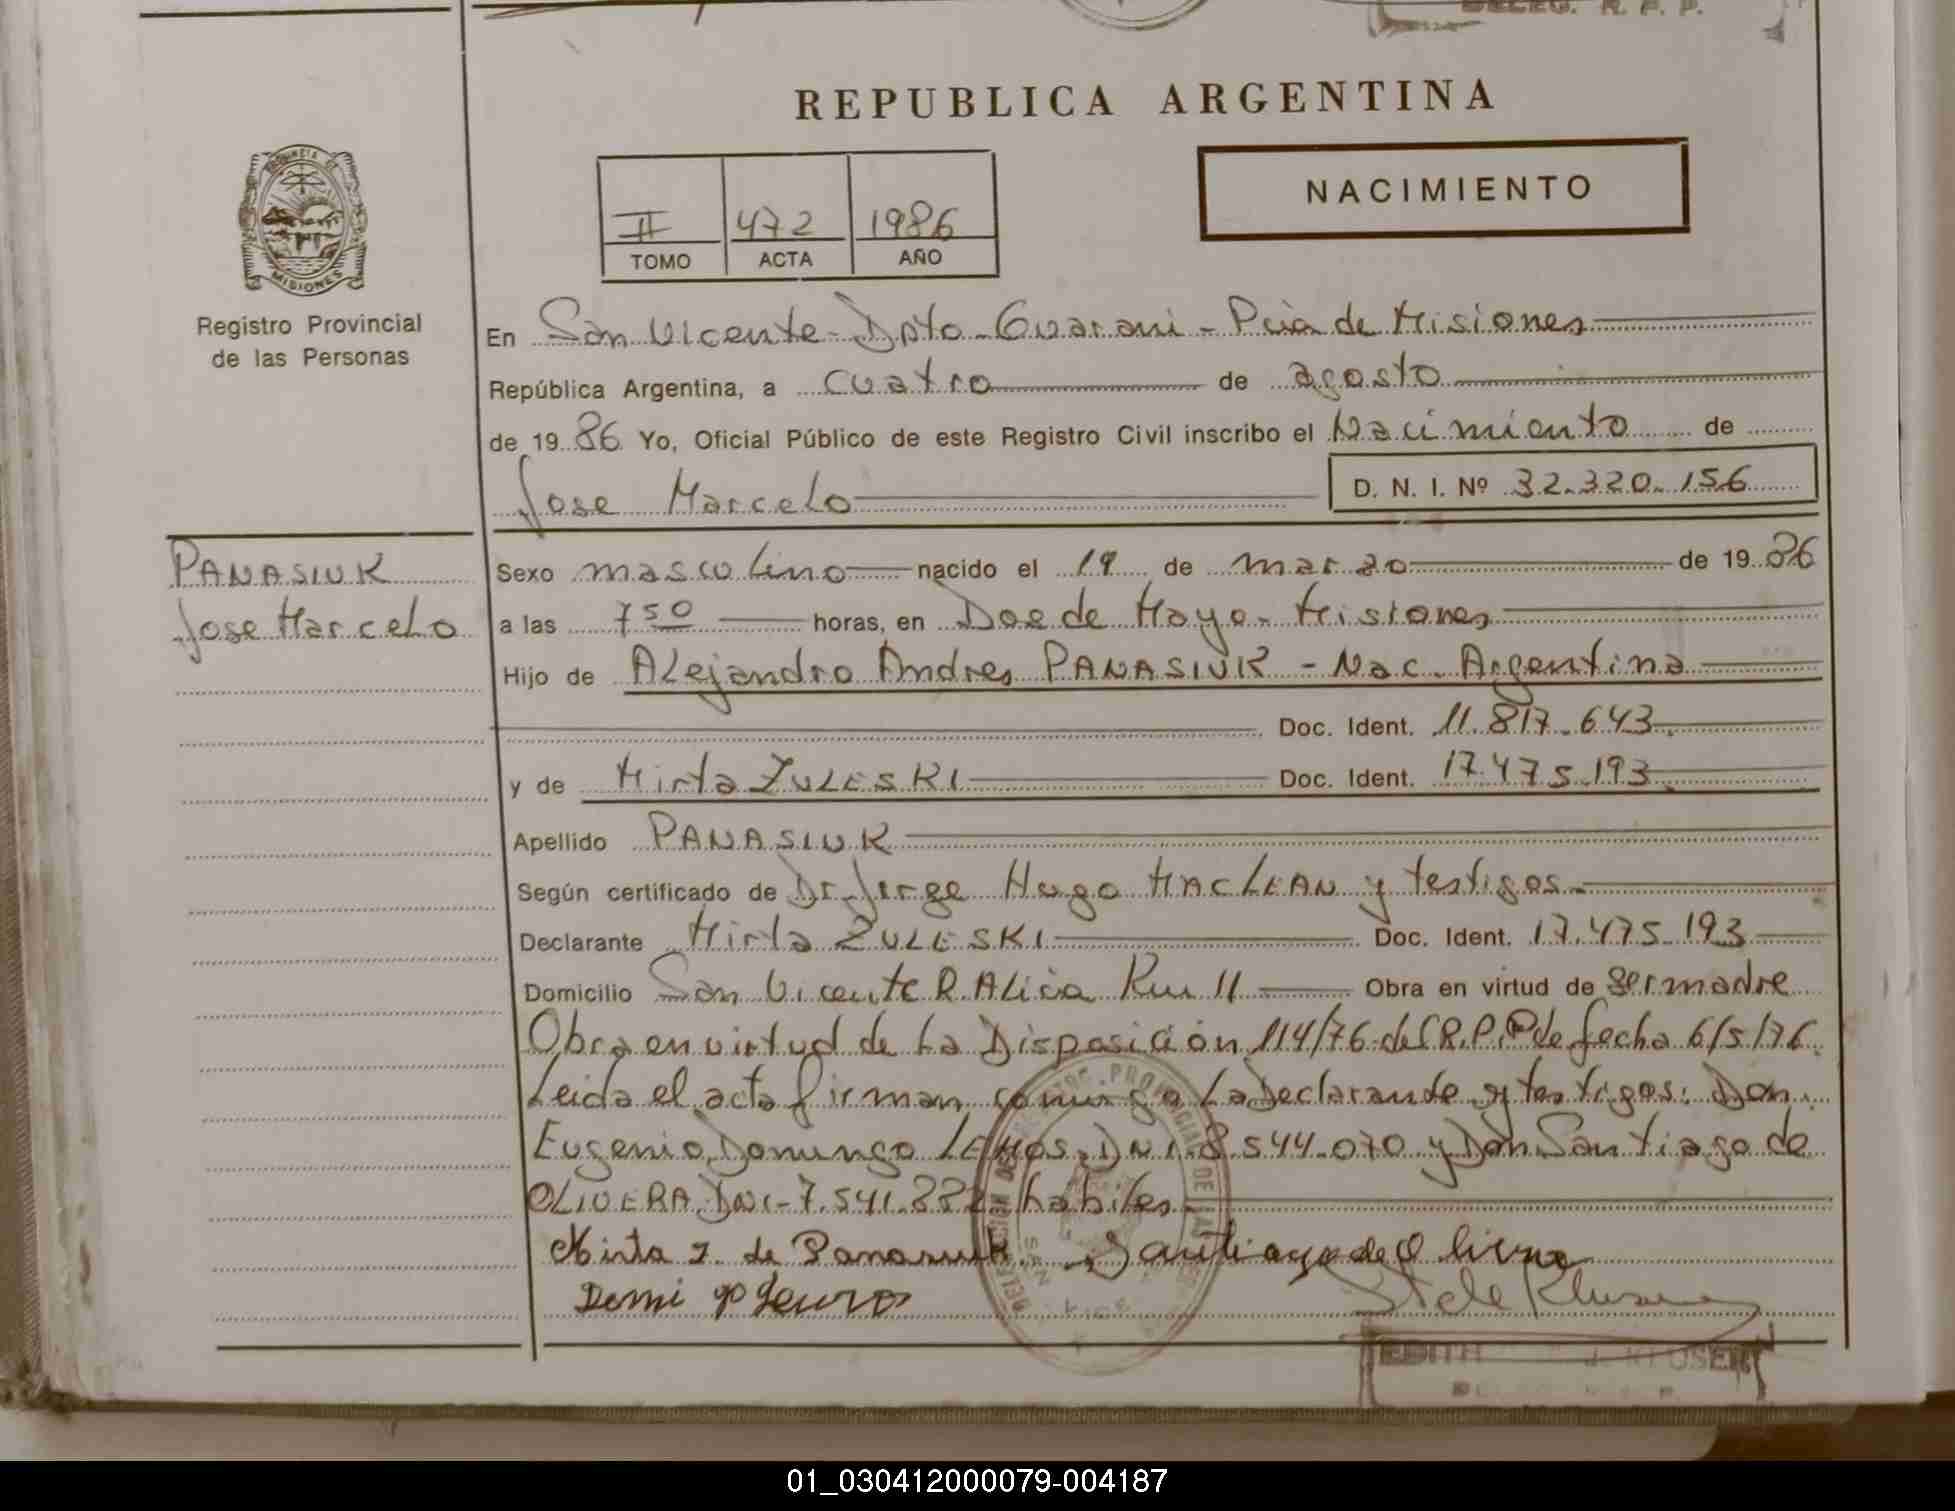 DELEG. R. P. P.
REPUBLICA ARGENTINA
NACIMIENTO
II 472 1986
TOMO ACTA AÑO
PROVINCIA DE MISIONES
Registro Provincial
de las Personas
En San Vicente - Dpto - Guarani - Pcia de Misiones
República Argentina, a cuatro de agosto
de 1986 Yo, Oficial Público de este Registro Civil inscribo el Nacimiento de
Jose Marcelo D. N. I. Nº 32.320.156
PANASIUK
Jose Marcelo
Sexo masculino nacido el 19 de marzo de 1986
a las 7 50 horas, en Dos de Mayo - Misiones
Hijo de Alejandro Andres PANASIUK - Nac. Argentina
Doc. Ident. 11.817.643
y de Mirta ZULESKI Doc. Ident. 17.475.193
Apellido PANASIUK
Según certificado de Dr. Jorge Hugo MACLEAN y testigos
Declarante Mirta ZULESKI Doc. Ident. 17.475.193
Domicilio San Vicente R. Alicia Km 11 Obra en virtud de ser madre
Obra en virtud de la Disposición 114/76 del R.P.P de fecha 6/5/76.
Leida el acta firman conmigo la Declarante y testigos: Don
Eugenio Domingo LEMOS, DNI. 8.544.070 y Don Santiago de
OLIVERA DNI - 7.541.882 habiles
Mirta Z. de Panasiuk Santiago de Olivera
REGISTRO PROVINCIAL DE LAS
SAN VICE
EDITH J. KLUSER
01_030412000079-004187